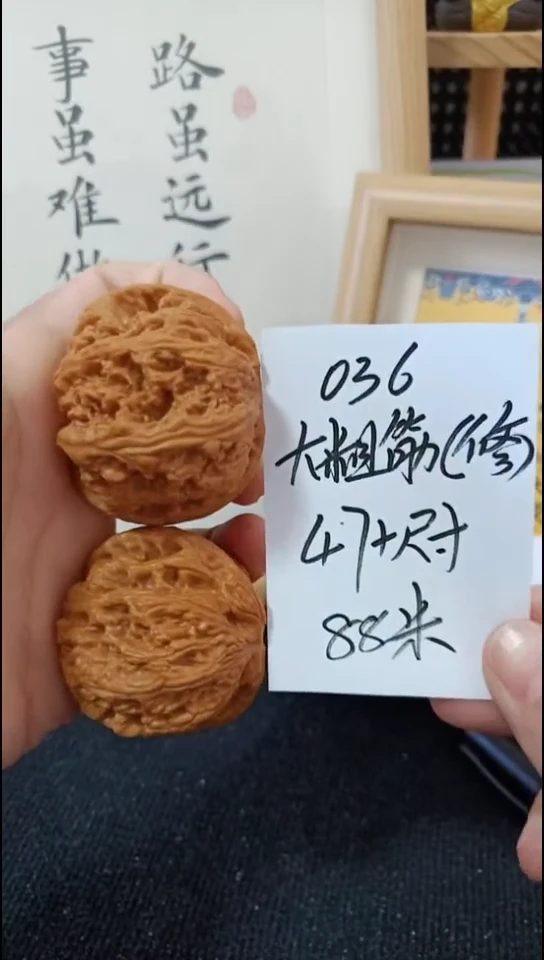 路虽远行
事虽难做
036
大粗筋(修)
47+尺寸
88米